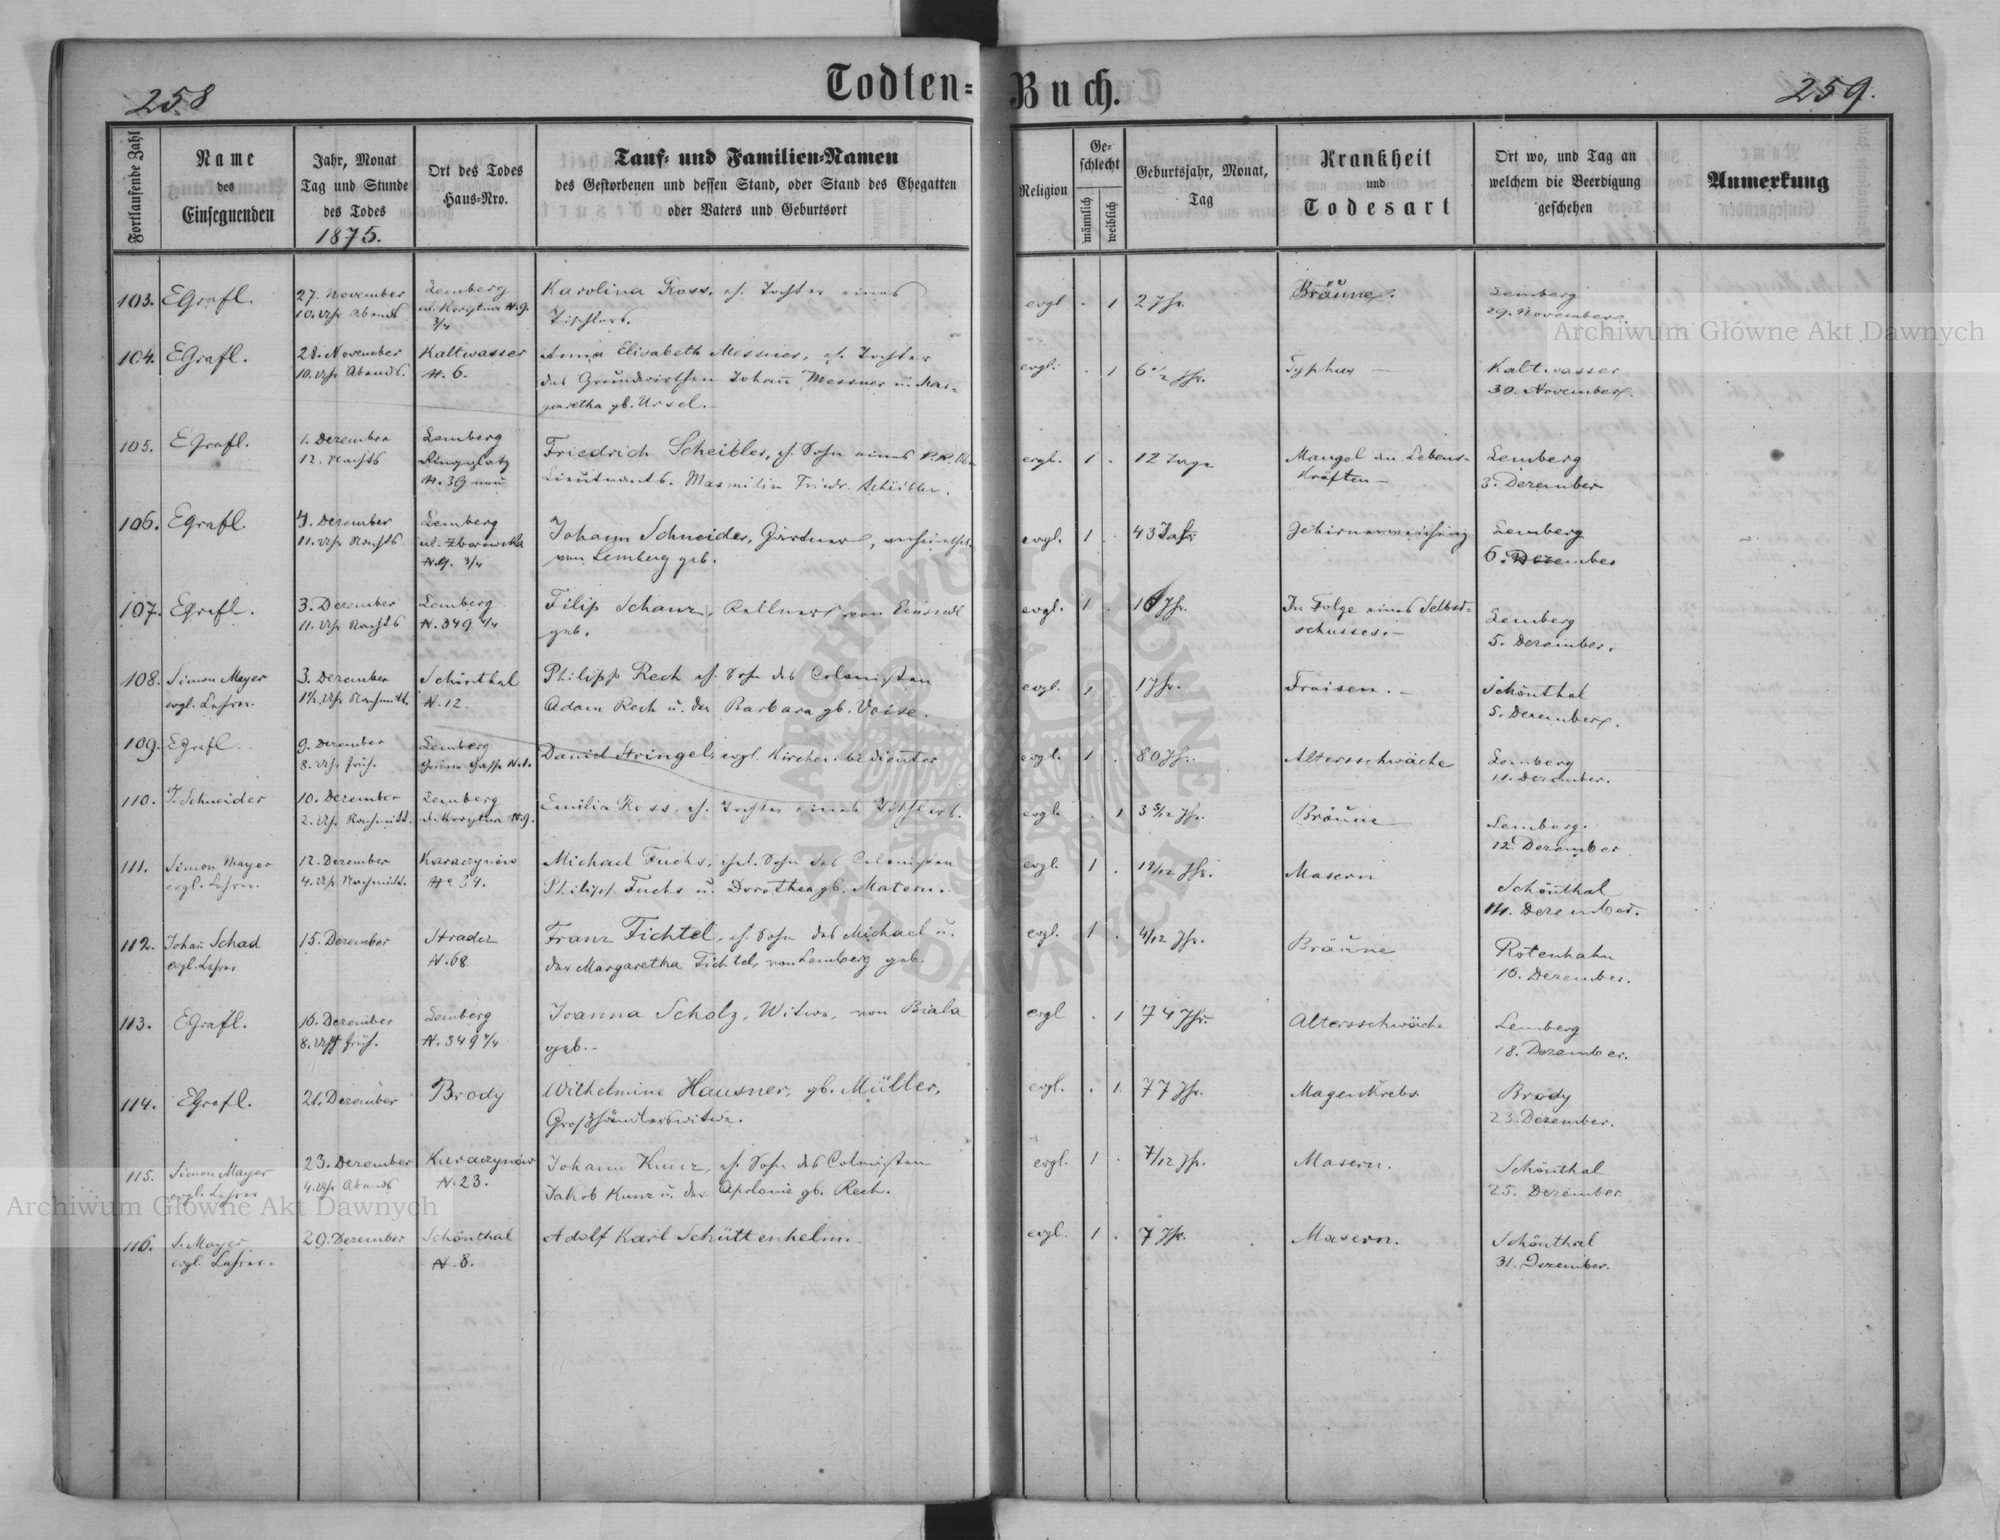 258
Todten-
Buch.
259.
Fortlaufende Zahl
Name
des
Einsegnenden
Jahr, Monat
Tag und Stunde
des Todes
1875.
Ort des Todes
Haus-Nro.
Tauf- und Familien-Namen
des Gestorbenen und dessen Stand, oder Stand des Ehegatten
oder Vaters und Geburtsort
Religion
Ge-
schlecht
männlich
weiblich
Geburtsjahr, Monat,
Tag
Krankheit
und
Todesart
Ort wo, und Tag an
welchem die Beerdigung
geschehen
Anmerkung
103. EGrafl. 27. November Lemberg Karolina Ross, eh. Tochter eines evgl. 1 2 Jhr. Bräune. Lemberg
10. Uhr Abends ul. Korytna N. 9. Tischlers. 29. November.
3/4
104. EGrafl. 28. November Kaltwasser Anna Elisabeth Messner, eh. Tochter evgl. 1 6 1/2 Jhr. Typhus Kaltwasser
10. Uhr Abends. N. 6. des Grundwirthen Johann Messner u. Mar- 30. November.
garetha gb. Ursel.
105. EGrafl. 1. Dezember Lemberg Friedrich Scheibler, eh. Sohn eines k.k. evgl. 1 12 Tage Mangel an Lebens- Lemberg
12. Nachts Ringplatz Lieutnants. Maxmilian Friedr. Kräften 3. Dezember
N. 39 neu
106. EGrafl. 4. Dezember Lemberg Johann Schneider, Gärtner, evgl. 1 43 Jahr Gehirnerweichung Lemberg
11. Uhr Nachts ul. Zborowska von Lemberg geb. 6. Dezember
3/4
107. EGrafl. 3. Dezember Lemberg Filip Schanz, Kellner, von geb. evgl. 1 Jhr. In Folge eines Selbst- Lemberg
11. Uhr Nachts N. 349 4/4 schusses. 5. Dezember.
108. Simon Mayer 3. Dezember Schönthal Philipp Rech eh. Sohn des Colonisten evgl. 1 1 Jhr. Fraisen. Schönthal
evgl. Lehrer. Uhr Nachmitt. N. 12. Adam Rech u. der Barbara gb. Voise. 5. Dezember.
109. EGrafl. 9. Dezember Lemberg David Stringel, evgl. Kirchenbedienter evgl. 1 80 Jhr. Altersschwäche Lemberg
8. Uhr früh. Gasse N. 1. 11. Dezember.
110. J. Schneider 10. Dezember Lemberg Emilia Ross, eh. Tochter eines Tischlers. evgl. 1 3 5/12 Jhr. Bräune Lemberg.
2. Uhr Nachmitt. ul. Korytna N. 9. 12. Dezember
111. Simon Mayer 12. Dezember Karaczynów Michael Fuchs, ehl. Sohn des Colonisten evgl. 1 Jhr. Masern Schönthal
evgl. Lehrer. 4. Uhr Nachmitt. No 34. Philipp Fuchs u. Dorothea gb. Matern. 14. Dezember.
112. Johan Schad 15. Dezember Stradcz Franz Fichtel, eh. Sohn des Michael u. evgl. 1 4/12 Jhr. Bräune Rotenhahn
evgl. Lehrer N. 68 der Margaretha Fichtel, von Lemberg geb. 16. Dezember.
113. EGrafl. 16. Dezember Lemberg Joanna Scholz, Witwe, von Biala evgl 1 74 Jhr. Altersschwäche Lemberg
8. Uhr früh. N. 349 4/4 geb. 18. Dezember.
114. EGrafl. 21. Dezember Brody Wilhelmine Hausner, gb. Müller, evgl. 1 77 Jhr. Magenkrebs Brody
Großhändlerswitwe. 23. Dezember.
115. Simon Mayer 23. Dezember Karaczynów Johann Kunz, eh. Sohn des Colonisten evgl. 1 7/12 Jhr. Masern. Schönthal
evgl. Lehrer 4. Uhr Abends N. 23. Jakob Kunz u. der Apolonie gb. Rech. 25. Dezember
116. S. Mayer 29. Dezember Schönthal Adolf Karl Schüttenhelm. evgl. 1 7 Jhr. Masern. Schönthal
evgl. Lehrer. N. 8. 31. Dezember.
Archiwum Główne Akt Dawnych
Archiwum Główne Akt Dawnych
ARCHIWUM GŁÓWNE AKT DAWNYCH